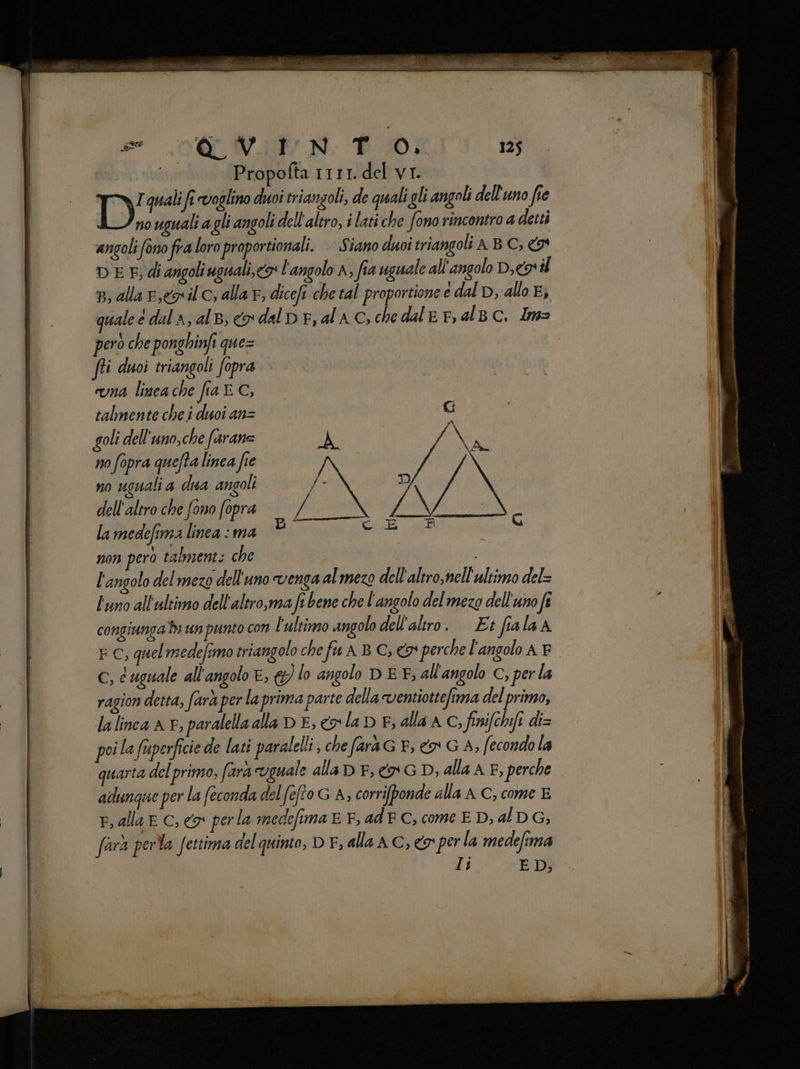 QVINTO. 125
Propoſta IIII. del VI.
DI quali ſi voglino duoi triangoli, de quali gli angoli dell'uno ſie
no uguali a gli angoli dell'altro, i lati che ſono rincontro a detti
angoli ſono fra loro proportionali. Siano duoi triangoli A B C, &
D E F, di angoli uguali, & l'angolo A, ſia uguale all'angolo D, & il
B, alla E, & il C, alla F, diceſi che tal proportione è dal D, allo E,
quale è dal A, al B, & dal D F, al A C, che dal E F, al B C. Im=
però che ponghinſi que=
ſti duoi triangoli ſopra
una linea che ſia E C,
talmente che i duoi an=
goli dell'uno, che ſaran=
no ſopra queſta linea ſie
no uguali a dua angoli
dell'altro che ſono ſopra
la medeſima linea : ma
non però talmente che
G
A A
D
B C E F C
l'angolo del mezo dell'uno venga al mezo dell'altro, nell'ultimo del=
l'uno all'ultimo dell'altro, ma ſi bene che l'angolo del mezo dell'uno ſi
congiunga in un punto con l'ultimo angolo dell'altro. Et ſia la A
F C, quel medeſimo triangolo che fu A B C, & perche l'angolo A F
C, è uguale all'angolo E, & lo angolo D E F, all'angolo C, per la
ragion detta, ſarà per la prima parte della ventiotteſima del primo,
la linea A F, paralella alla D E, & la D F, alla A C, finiſchiſi di=
poi la ſuperficie de lati paralelli, che ſarà G F, & G A, ſecondo la
quarta del primo, ſarà uguale alla D F, & G D, alla A F, perche
adunque per la ſeconda del ſeſto G A, corriſponde alla A C, come E
F, alla E C, & per la medeſima E F, ad F C, come E D, al D G,
ſarà per la ſettima del quinto, D F, alla A C, & per la medeſima
Ii E D,